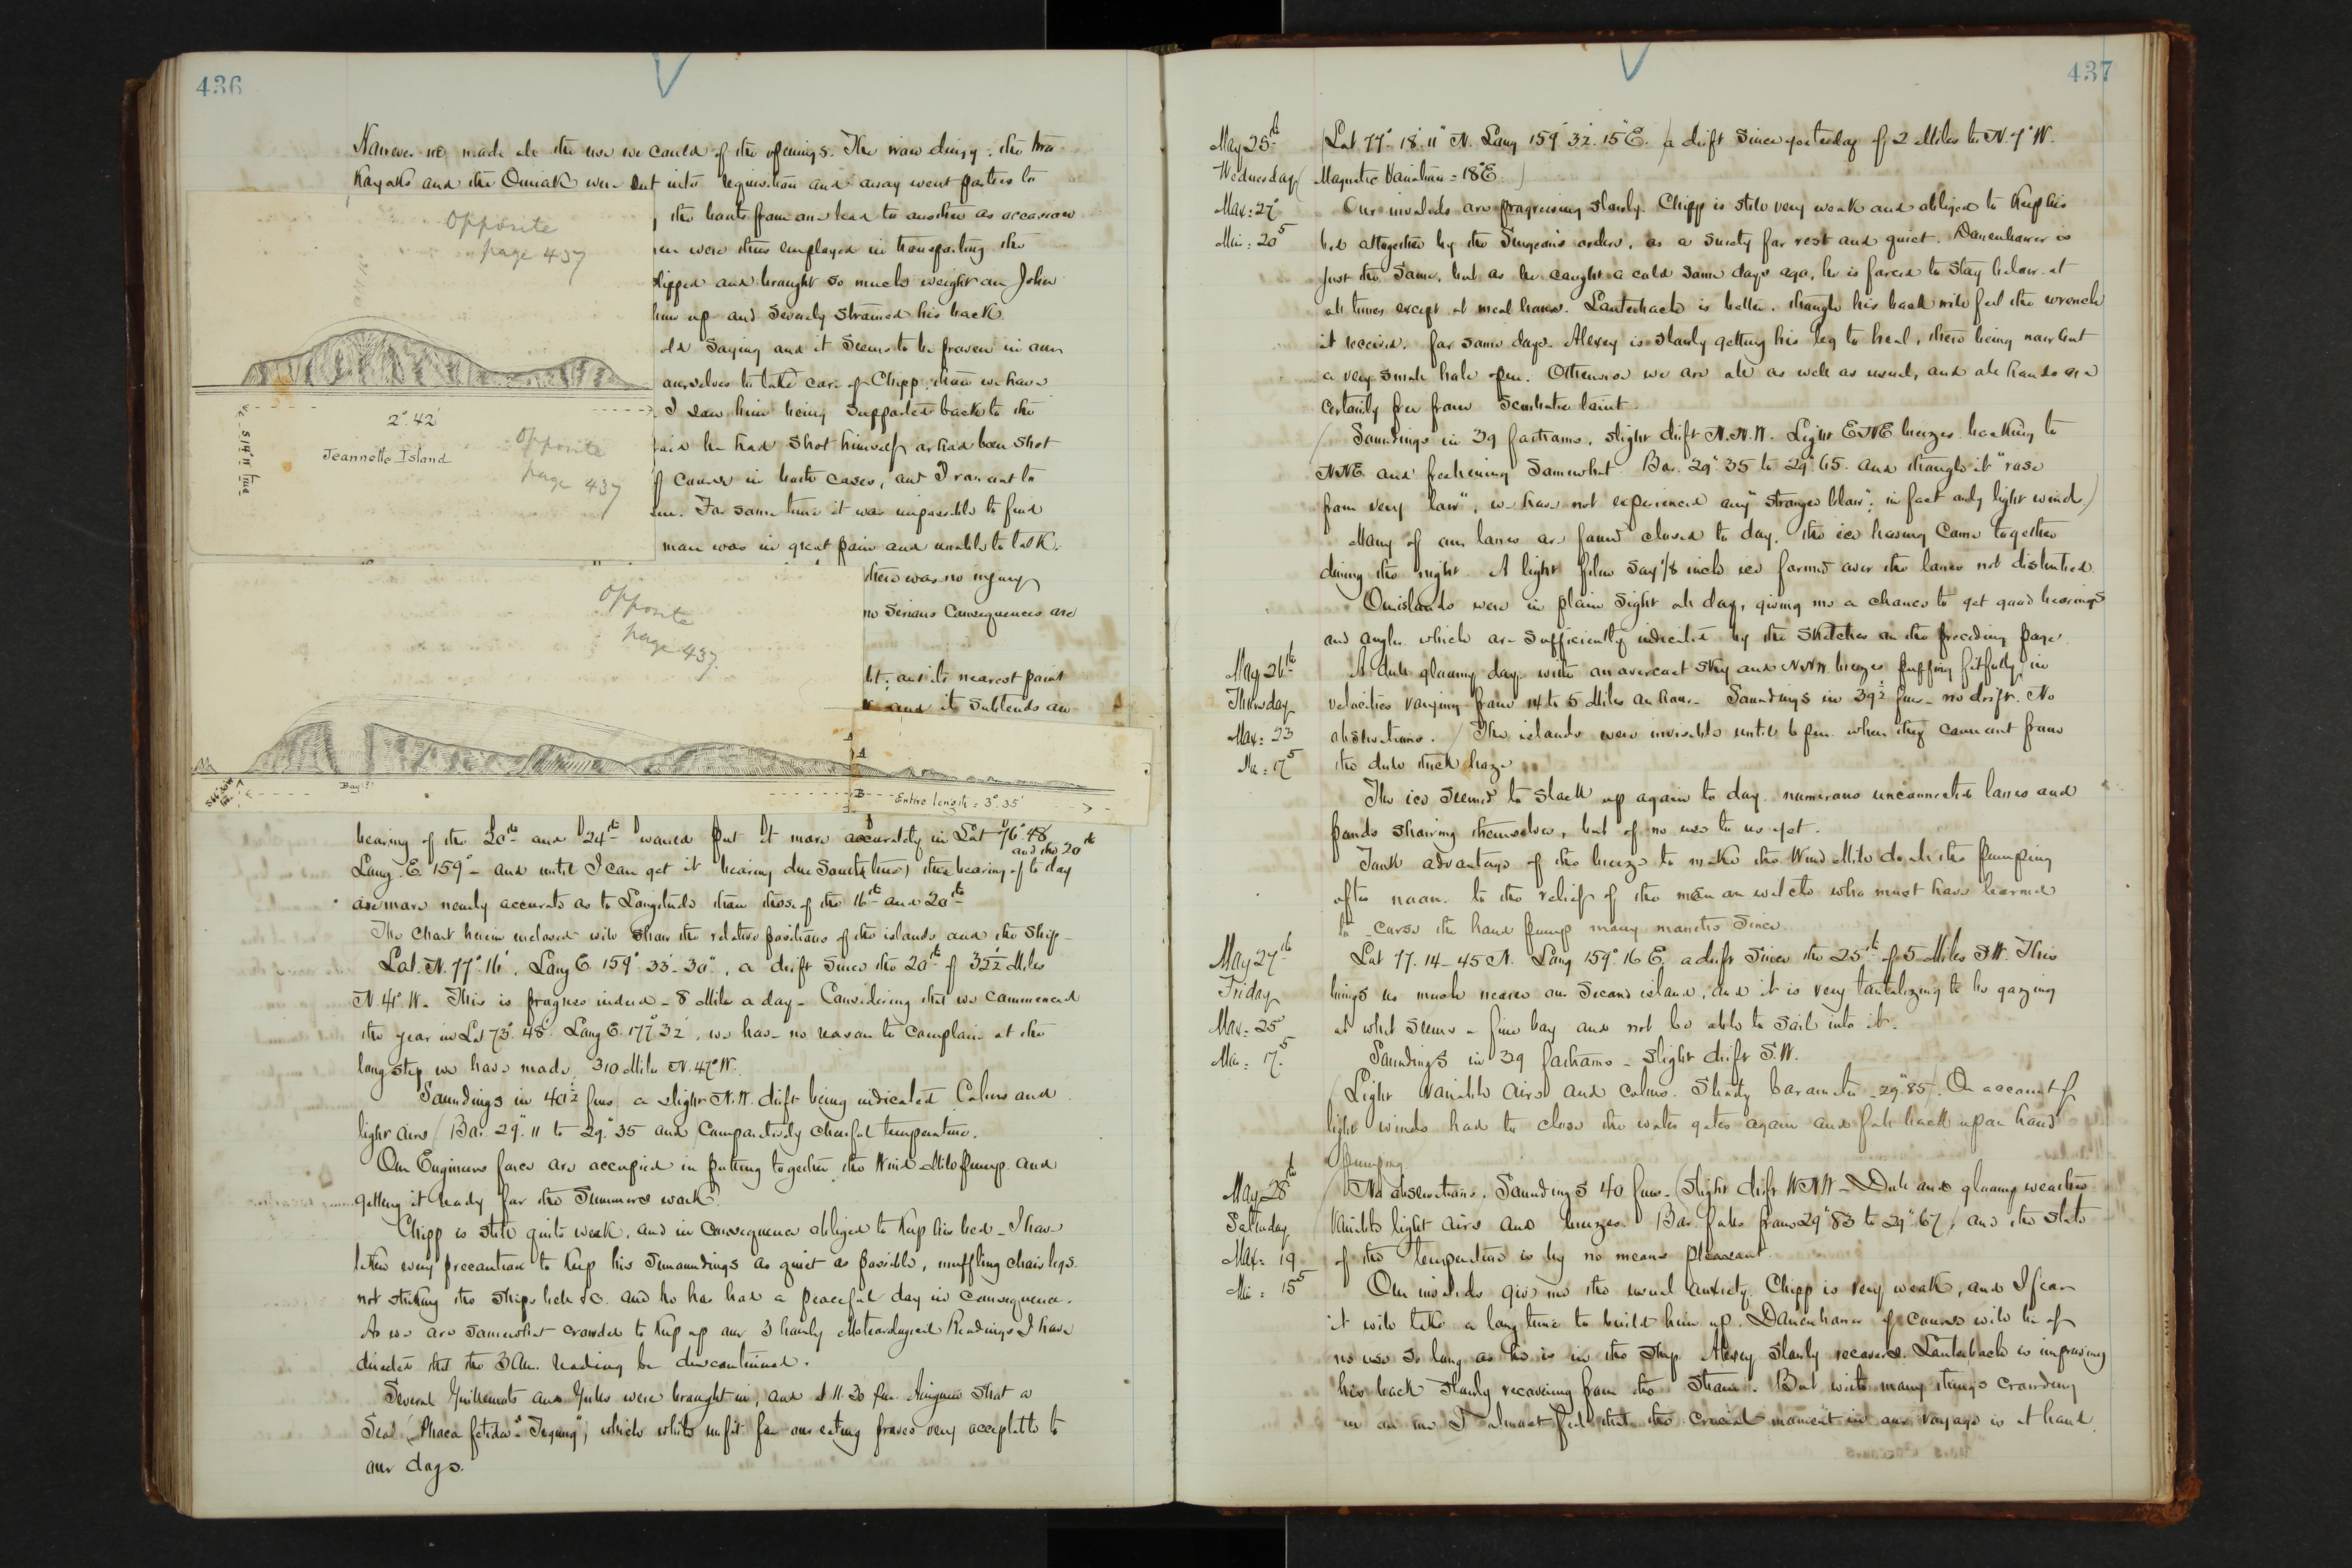 436
However we made all the use we could of the openings. The iron dingy, the two
Kayaks and the Oomiak were put into requisition and away went parties to
the hauts from one lead to another as occasion
men were thus employed in transporting the
slipped and brought so much weight on John
him up and severely strained his back.
old saying and it seems to be proven in our
ourselves to take care of Chipp, than we have
I saw him being supported back to the
said he had shot himself or had been shot
of course in both cases, and I ran out to
him. For some time it was impossible to find
man was in great pain and unable to talk.
there was no injury
no serious consequences are
but; and its nearest point
and it subtends an
Opposite
page 437
2° 42'
Jeannette Island
S 14° W true
Opposite
page 437
Opposite
page 437.
Bay?
A
A
B
Entire length = 3° 35'
bearing of the 20th and 24th would put it more accurately in Lat 76° 48'
Long. E. 159° - and until I can get it bearing due South (true) the bearing of to day and the 20th
are more nearly accurate as to Longitude than those of the 16th and 20th
The Chart herein enclosed will show the relative positions of the islands and the ship -
Lat. N. 77° 16', Long E. 159° 33' 30", a drift since the 20th of 32½ Miles
N. 41° W. This is progress indeed - 8 Miles a day - Considering that we commenced
the year in Lat 73° 48' Long E. 177° 32', we have no reason to complain at the
long step we have made, 310 Miles N. 47° W.
Soundings in 40½ fms a slight N.W. drift being indicated. Calms and
light airs (Bar. 29".11 to 29".35 and Comparatively cheerful temperature.
Our Engineers force are occupied in putting together the Wind Mill pump and
getting it ready for the Summers work.
Chipp is still quite weak, and in consequence obliged to keep his bed - I have
taken every precaution to keep his surroundings as quiet as possible, muffling chair legs.
not striking the ships bell &c. and he has had a peaceful day in consequence.
As we are somewhat crowded to keep up our 3 hourly Meteorological Readings I have
directed that the 3 AM. reading be discontinued.
Several Guillemots and Gulls were brought in, and at 11.30 pm. Aneguin shot a
Seal (Phoca fetida "), which while unfit for our eating proves very acceptable to
our dogs.
437
May 25th
Wednesday
Max: 27°
Min: 20.5
Lat 77° 18' 11" N. Long 159° 32' 15" E. (a drift since yesterday of 2 Miles to N. 7° W.
Magnetic Variation = 18° E.)
Our invalids are progressing slowly. Chipp is still very weak and obliged to keep his
bed altogether by the Surgeon's orders, as a surety for rest and quiet. Danenhower is
just the same, but as he caught a cold some days ago, he is forced to stay below at
all times except at meal hours. Lauterbach is better, though his back will feel the wrench
it received, for some days. Alexey is slowly getting his leg to heal, there being now but
a very small hole open. Otherwise we are all as well as usual, and all hands are
certainly free from Scorbutic taint.
(Soundings in 39 fathoms, slight drift N.N.W. Light ENE breezes backing to
NNE and freshening somewhat. Bar. 29".35 to 29".65. and though it "rose
from very low", we have not experienced any "stronger blow"; in fact only light winds.)
Many of our lanes are found closed to day, the ice having come together
during the night. A light film say 1/8 inch ice formed over the lanes not disturbed.
Our islands were in plain sight all day, giving me a chance to get good bearings
and angles which are sufficiently indicated by the sketches on the preceding page.
May 26th
Thursday
Max: 23
Min: 17.5
A dull gloomy day with an overcast sky and NNW breezes puffing fitfully, in
velocities varying from 14 to 5 Miles an hour. Soundings in 39½ fms - no drift. No
observations. / The islands were invisible until 6 pm. when they came out from
the dull thick haze.
The ice seemed to slack up again to day. numerous unconnected lanes and
ponds showing themselves, but of no use to us yet.
Took advantage of the breeze to make the Wind Mill do all the pumping
after noon. to the relief of the men on watch who must have learned
to curse the hand pump many months since.
May 27th
Friday
Max: 25
Min: 17.5
Lat 77. 14 - 45 N. Long 159° 16' E. a drift since the 25th of 5 Miles S W. This
brings us much nearer our second island, and it is very tantalizing to be gazing
at what seems a fine bay and not be able to sail into it.
Soundings in 39 fathoms - slight drift S.W.
(Light variable airs and calms. Steady barometer 29".85). On account of
light winds had to close the water gates again and fall back upon hand
pumping.
May 28th
Saturday
Max: 19
Min: 15.5
(No observations. Soundings 40 fms - (Slight drift WNW - Dull and gloomy weather
Variable light airs and breezes. Bar. falls from 29".83 to 29".67), and the state
of the temperature is by no means pleasant.
Our invalids give me the usual anxiety. Chipp is very weak, and I fear
it will take a long time to build him up. Danenhower of course will be of
no use so long as he is in the ship. Alexey slowly recovers. Lauterbach is improving
his back slowly recovering from the strain. But with many things crowding
in on me I almost feel that the crucial moment in our voyage is at hand.